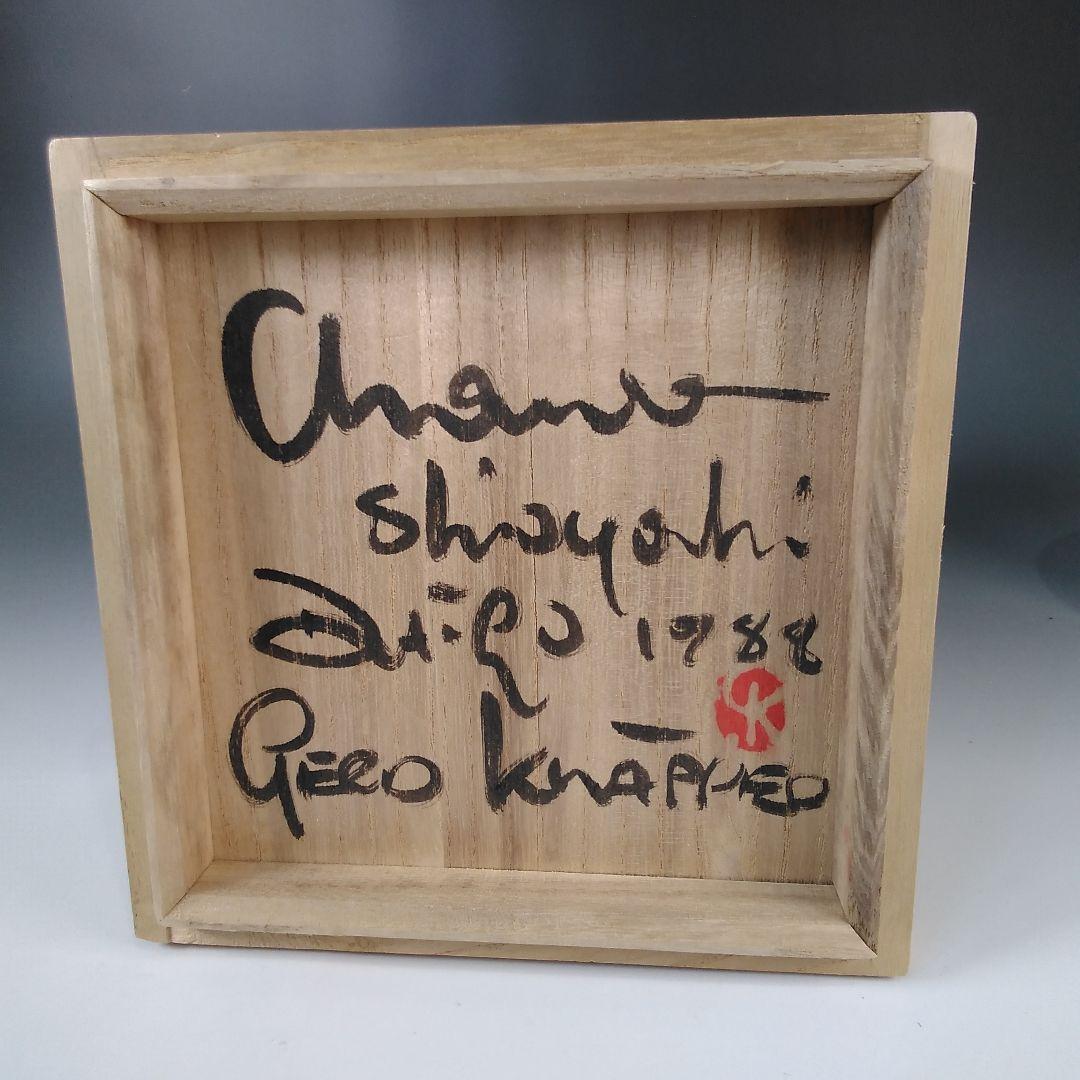 Chawan
shioyaki
Daigo 1988
K
GERD KNÄPPER